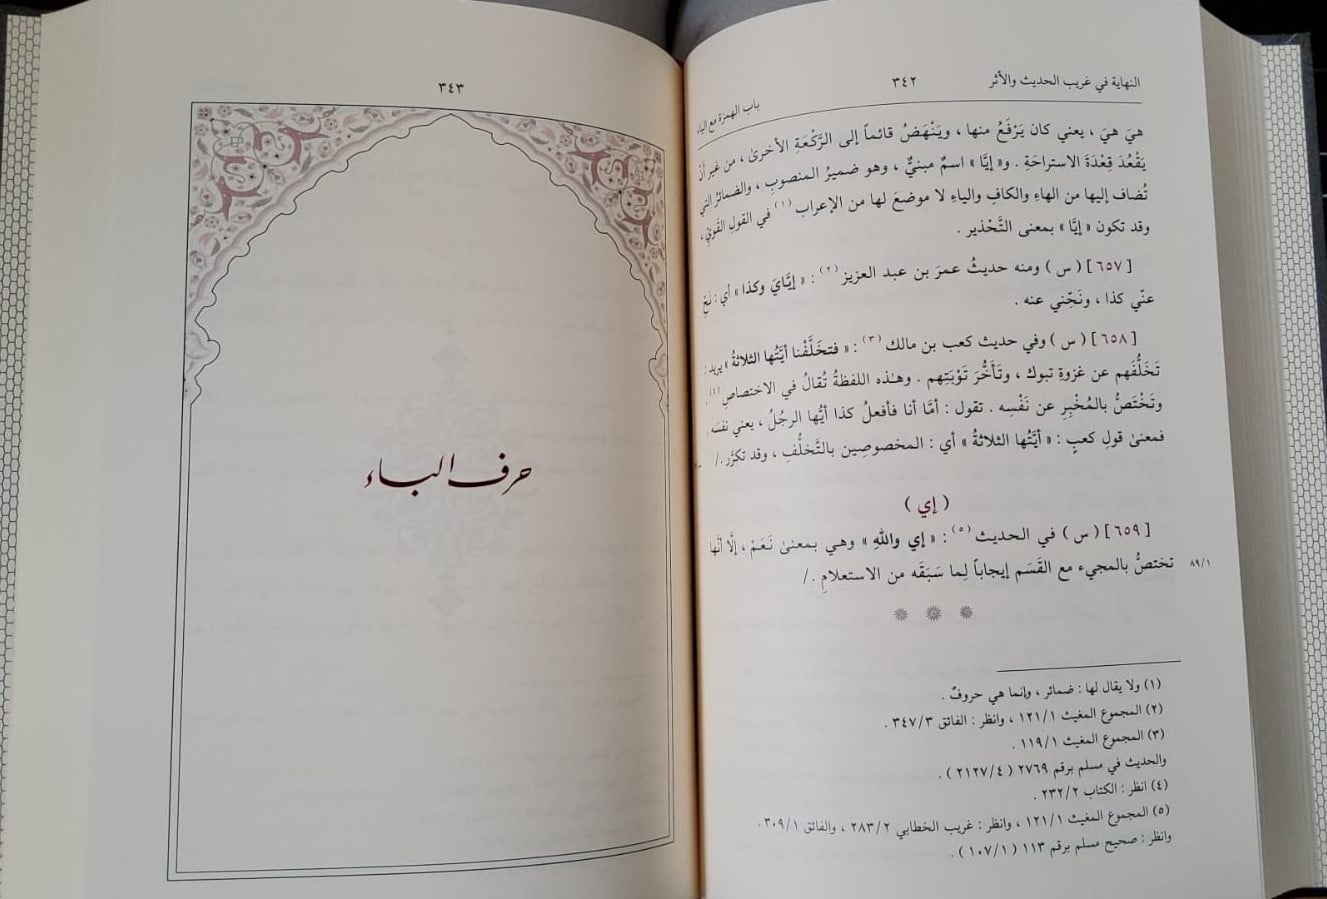 النهاية في غريب الحديث والأثر
٣٤٢
باب الهمزة مع الياء
هيَ هيَ ، يعني كان يَرْفَعُ منها ، ويَنْهَضُ قائماً إلى الرَّكْعَةِ الأخرىٰ ، من غير أنْ
يَقْعُدَ قِعْدَةَ الاستراحَةِ . و« إيَّا » اسمٌ مبنيٌّ ، وهو ضميرُ المنصوبِ ، والضمائرُ التي
تُضاف إليها من الهاءِ والكافِ والياءِ لا موضعَ لها من الإعراب (١) في القولِ القَويّ ،
وقد تكون « إيَّا » بمعنى التَّحْذير .
[٦٥٧] ( س ) ومنه حديثُ عمرَ بن عبد العزيز (٢) : « إيَّايَ وكذا » أي : نَحّ
عنّي كذا ، ونَحِّني عنه .
[٦٥٨] ( س ) وفي حديث كعب بن مالك (٣) : « فتخَلَّفْنا أيَّتُها الثلاثةُ » يريد :
تَخَلُّفَهم عن غزوةِ تبوك ، وتَأَخُّرَ تَوْبَتِهم . وهذه اللفظةُ تُقالُ في الاختصاصِ (٤) .
وتَخْتَصُّ بالمُخْبِرِ عن نَفْسِه . تقول : أمَّا أنا فأفعلُ كذا أيُّها الرجُلُ ، يعني نفسَه .
فمعنىٰ قولِ كعبٍ : « أيَّتُها الثلاثةُ » أي : المخصوصِين بالتَّخلُّفِ ، وقد تكرَّر ./
( إي )
[٦٥٩] ( س ) في الحديث (٥) : « إي واللهِ » وهي بمعنىٰ نَعَمْ ، إلَّا أنّها
تختصُّ بالمجيء مع القَسَم إيجاباً لِما سَبَقَه من الاستعلامِ ./
٨٩/١
(١) ولا يقال لها : ضمائر ، وإنما هي حروفٌ .
(٢) المجموع المغيث ١٢١/١ ، وانظر : الفائق ٣٤٧/٣ .
(٣) المجموع المغيث ١١٩/١ .
والحديث في مسلم برقم ٢٧٦٩ ( ٢١٢٧/٤ ) .
(٤) انظر : الكتاب ٢٣٢/٢ .
(٥) المجموع المغيث ١٢١/١ ، وانظر : غريب الخطابي ٢٨٣/٢ ، والفائق ٣٠٩/١ .
وانظر : صحيح مسلم برقم ١١٣ ( ١٠٧/١ ) .
٣٤٣
حرف الباء